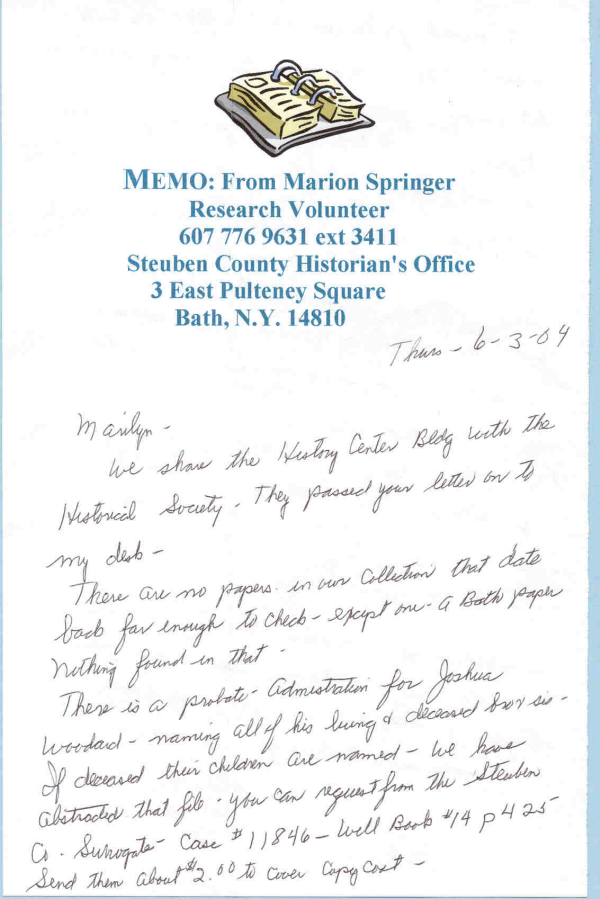 MEMO: From Marion Springer
Research Volunteer
607 776 9631 ext 3411
Steuben County Historian's Office
3 East Pulteney Square
Bath, N.Y. 14810
Thurs - 6-3-04
Marilyn -
We share the History Center Bldg with the
Historical Society - They passed your letter on to
my desk -
There are no papers in our Collection that date
back far enough to check - except one - a Bath paper
Nothing found in that -
There is a probate - Admistration for Joshua
Woodard - naming all of his living & deceased bro & sis -
If deceased their children are named - We have
abstracted that file - you can request from the Steuben
Co. Surrogate - Case #11846 - Will Book #14 p 425
Send them about $2.00 to cover Copy Cost -